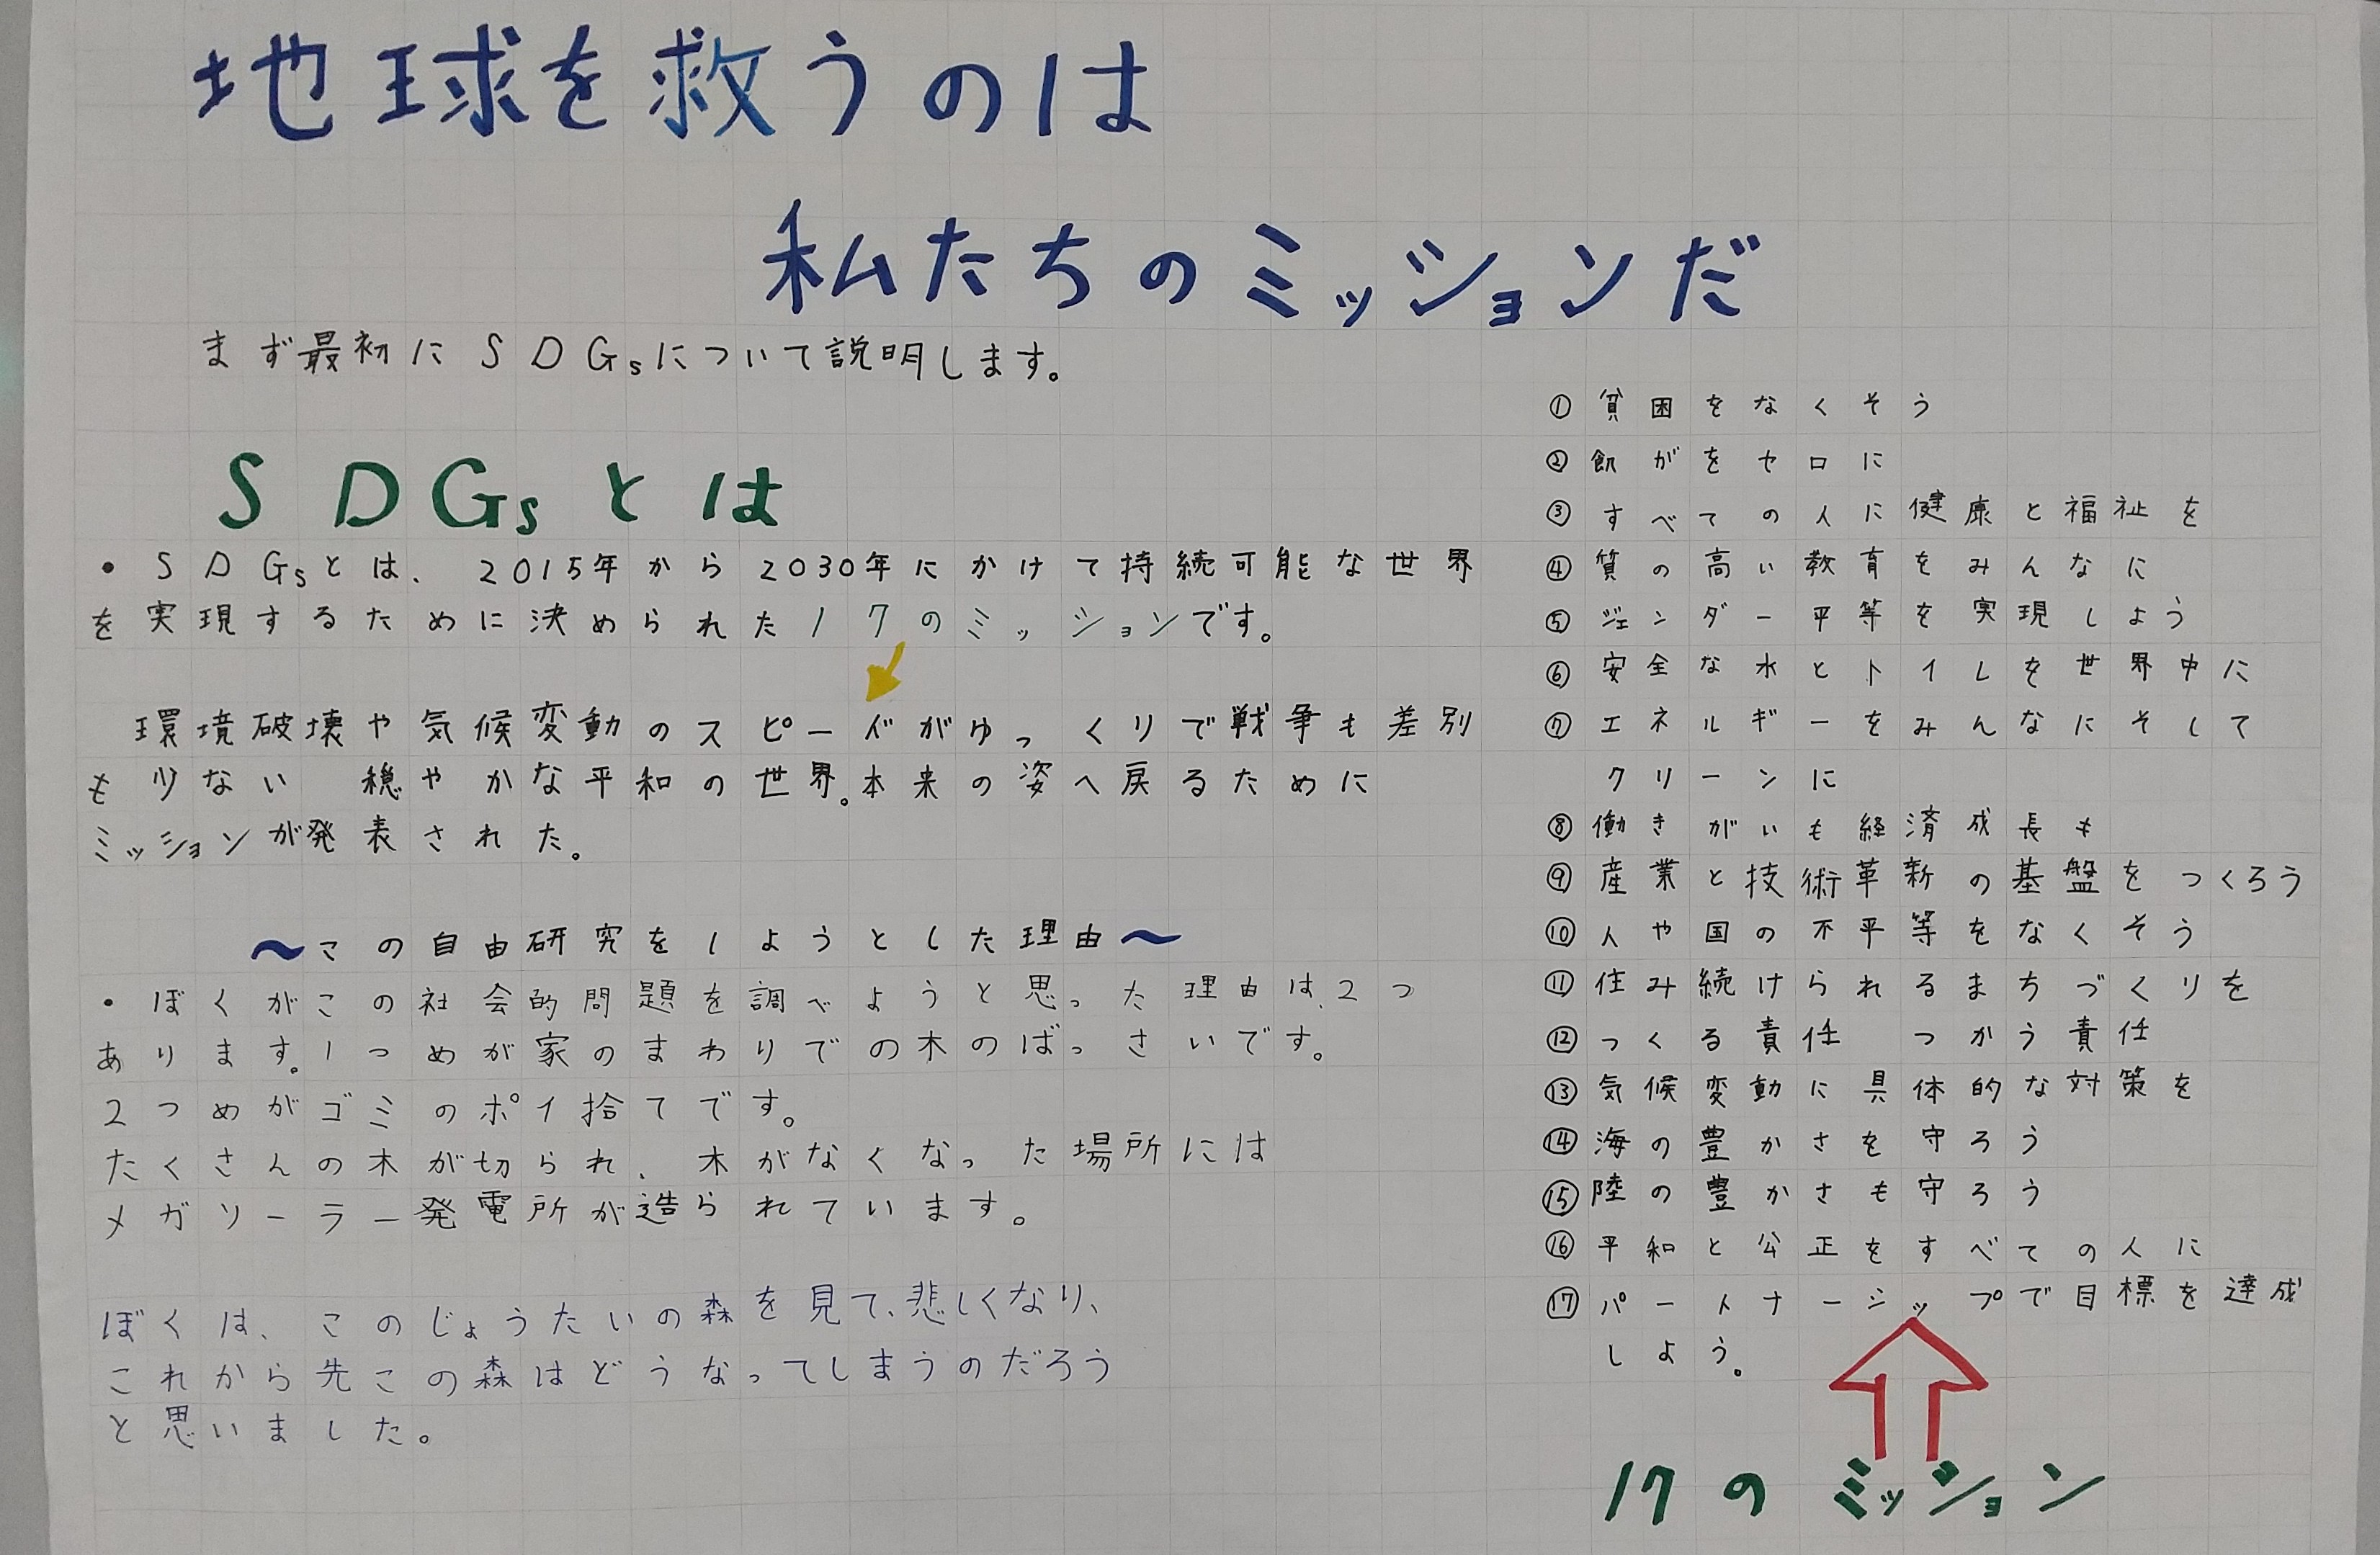 地球を救うのは
私たちのミッションだ
まず最初にSDGsについて説明します。
SDGsとは
・SDGsとは、2015年から2030年にかけて持続可能な世界
を実現するために決められた17のミッションです。
環境破壊や気候変動のスピードがゆっくりで戦争も差別
も少ない 穏やかな平和の世界。本来の姿へ戻るために
ミッションが発表された。
〜この自由研究をしようとした理由〜
・ぼくがこの社会的問題を調べようと思った理由は、2つ
あります。1つめが家のまわりでの木のばっさいです。
2つめがゴミのポイ捨てです。
たくさんの木が切られ、木がなくなった場所には
メガソーラー発電所が造られています。
ぼくは、このじょうたいの森を見て、悲しくなり、
これから先この森はどうなってしまうのだろう
と思いました。
①貧困をなくそう
②飢がをゼロに
③すべての人に健康と福祉を
④質の高い教育をみんなに
⑤ジェンダー平等を実現しよう
⑥安全な水とトイレを世界中に
⑦エネルギーをみんなにそして
クリーンに
⑧働きがいも経済成長も
⑨産業と技術革新の基盤をつくろう
⑩人や国の不平等をなくそう
⑪住み続けられるまちづくりを
⑫つくる責任 つかう責任
⑬気候変動に具体的な対策を
⑭海の豊かさを守ろう
⑮陸の豊かさも守ろう
⑯平和と公正をすべての人に
⑰パートナーシップで目標を達成
しよう。
17のミッション